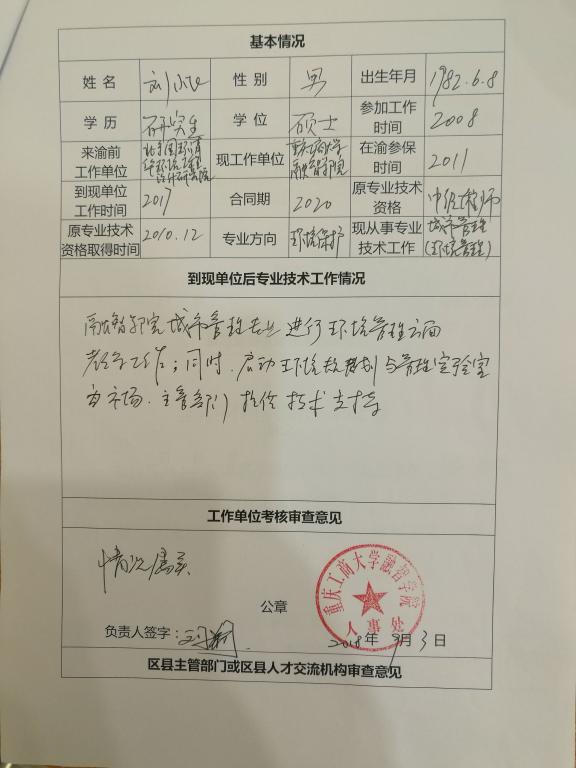 基本情况
姓名 刘 性别 男 出生年月 1982.6.8
学历 研究生 学位 硕士 参加工作时间 2008
来渝前工作单位 北京国环清华环境工程设计研究院 现工作单位 重庆工商大学融智学院 在渝参保时间 2011
到现单位工作时间 2017 合同期 2020 原专业技术资格 中级工程师
原专业技术资格取得时间 2010.12 专业方向 环境保护 现从事专业技术工作 城市管理(环境管理)
到现单位后专业技术工作情况
融智学院城市管理专业进行环境管理方面
教学工作；同时，启动环境规划与管理实验室
为市场、主管部门提供技术支持
工作单位考核审查意见
情况属实
重庆工商大学融智学院
人事处
公章
负责人签字：
2018年9月3日
区县主管部门或区县人才交流机构审查意见